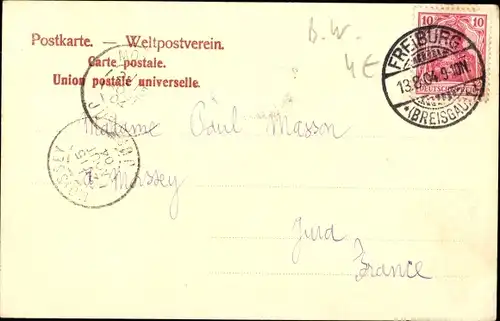 B. W.
4€
Postkarte. — Weltpostverein.
Carte postale.
Union postale universelle.
10 10
DEUTSCHES REICH
FREIBURG
13.8.04.9-10N
*(BREISGAU)
Madame Paul Masson
a Morssey
Jura
France